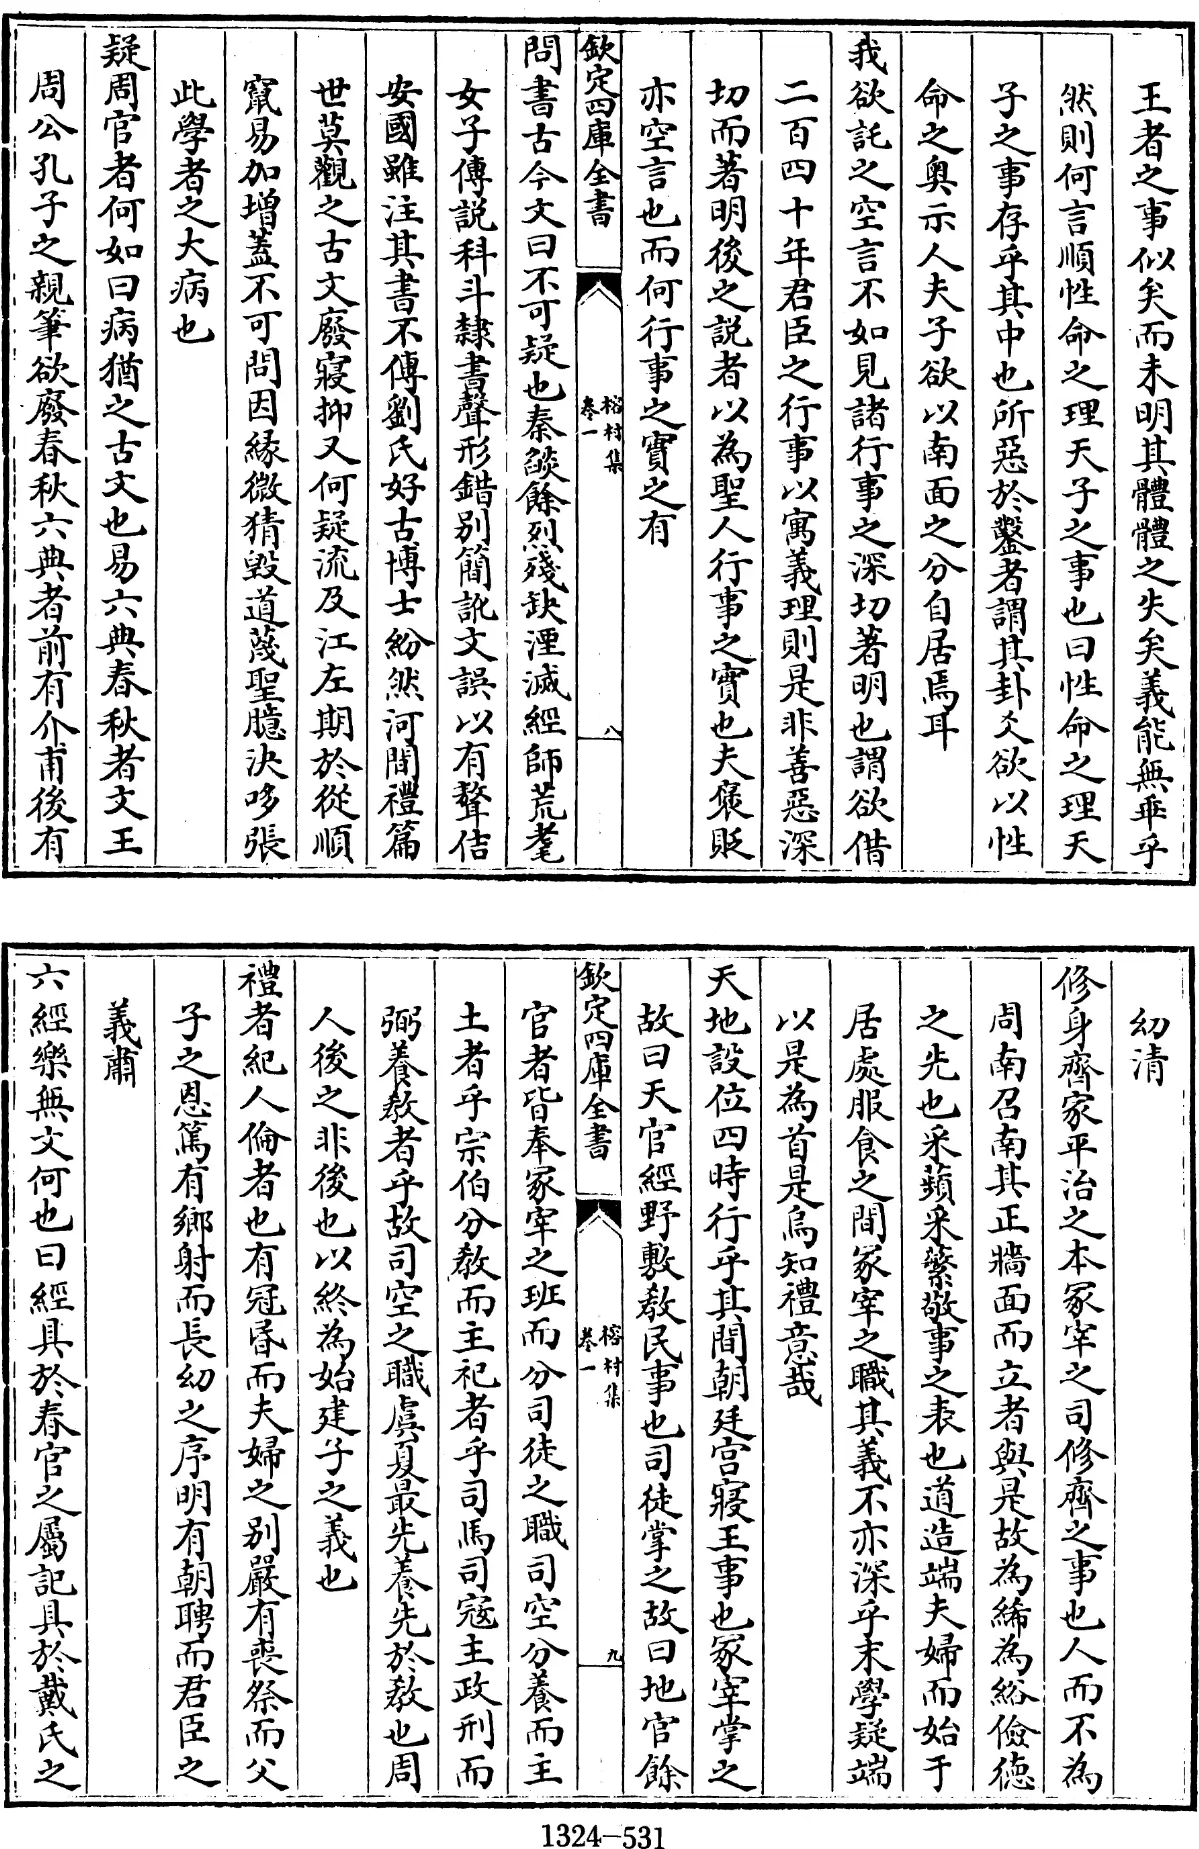 王者之事似矣而未明其體體之失矣義能無乖乎
然則何言順性命之理天子之事也曰性命之理天
子之事存乎其中也所惡於鑿者謂其卦爻欲以性
命之奧示人夫子欲以南面之分自居焉耳
我欲託之空言不如見諸行事之深切著明也謂欲借
二百四十年君臣之行事以寓義理則是非善惡深
切而著明後之説者以為聖人行事之實也夫褒貶
亦空言也而何行事之實之有
欽定四庫全書
榕村集
卷一
八
問書古今文曰不可疑也秦燄餘烈殘缺湮滅經師荒耄
女子傳説科斗隸書聲形錯別簡訛文誤以有聱佶
安國雖注其書不傳劉氏好古博士紛然河間禮篇
世莫觀之古文廢寢抑又何疑流及江左期於從順
竄易加增蓋不可問因緣微猜毀道蔑聖臆決哆張
此學者之大病也
疑周官者何如曰病猶之古文也易六典春秋者文王
周公孔子之親筆欲廢春秋六典者前有介甫後有
幼清
修身齊家平治之本冢宰之司修齊之事也人而不為
周南召南其正牆面而立者與是故為絺為綌儉德
之先也采蘋采蘩敬事之表也道造端夫婦而始于
居處服食之間冢宰之職其義不亦深乎末學疑端
以是為首是烏知禮意哉
天地設位四時行乎其間朝廷宫寢王事也冢宰掌之
故曰天官經野敷教民事也司徒掌之故曰地官餘
欽定四庫全書
榕村集
卷一
九
官者皆奉冢宰之班而分司徒之職司空分養而主
土者乎宗伯分教而主祀者乎司馬司寇主政刑而
弼養教者乎故司空之職虞夏最先養先於教也周
人後之非後也以終為始建子之義也
禮者紀人倫者也有冠昏而夫婦之別嚴有喪祭而父
子之恩篤有鄉射而長幼之序明有朝聘而君臣之
義肅
六經樂無文何也曰經具於春官之屬記具於戴氏之
1324-531